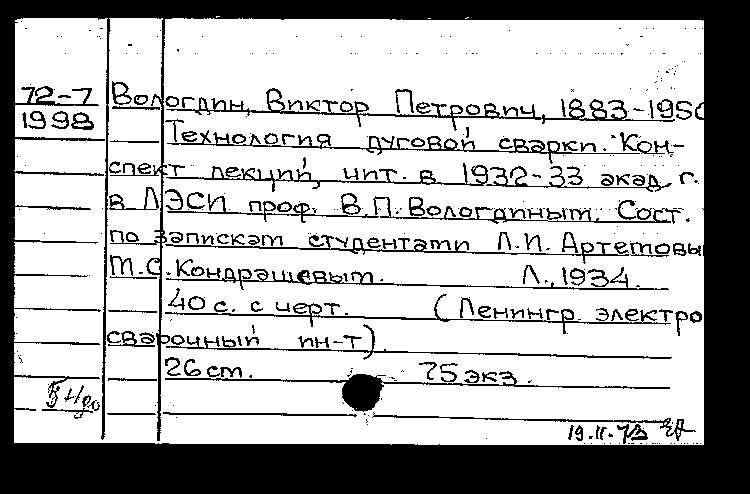 72-7 Вологдин, Виктор Петрович, 1883-1950
1998 Технология дуговой сварки. Кон-
спект лекций, чит. в 1932-33 акад. г.
в ЛЭСИ проф. В.П. Вологдиным. Сост.
по запискам студентами Л.И. Артемовы
М.С. Кондрашевым. Л., 1934.
40 с. с черт. (Ленингр. электро
сварочный ин-т).
26 см. 75 экз.
19.II.73